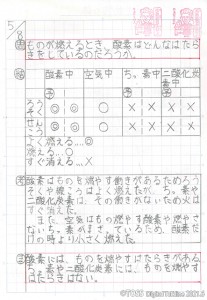 5/8
問 ものが燃えるとき、酸素はどんなはたらきをしているのだろうか。
酸素中 空気中 ちっ素中 二酸化炭素中
予 予 予
ろうそく ◎ ◎ ○ × × × ×
せんこう ◎ ○ × × × ×
よく燃える…◎
燃える…○
すぐ消える…×
考 酸素はものを燃やす働きがあるためろうそくや線こうはよく燃えたが、ちっ素や二酸化炭素は、その働きがないため火はすぐ消えた。
また、空気はものを燃やす酸素や燃やさないちっ素がまざっているため、酸素だけの時より小さく燃えた。
酸素にはものを燃やすはたらきがある。ちっ素や二酸化炭素にはものを燃やすはたらきはない。
©TOSS